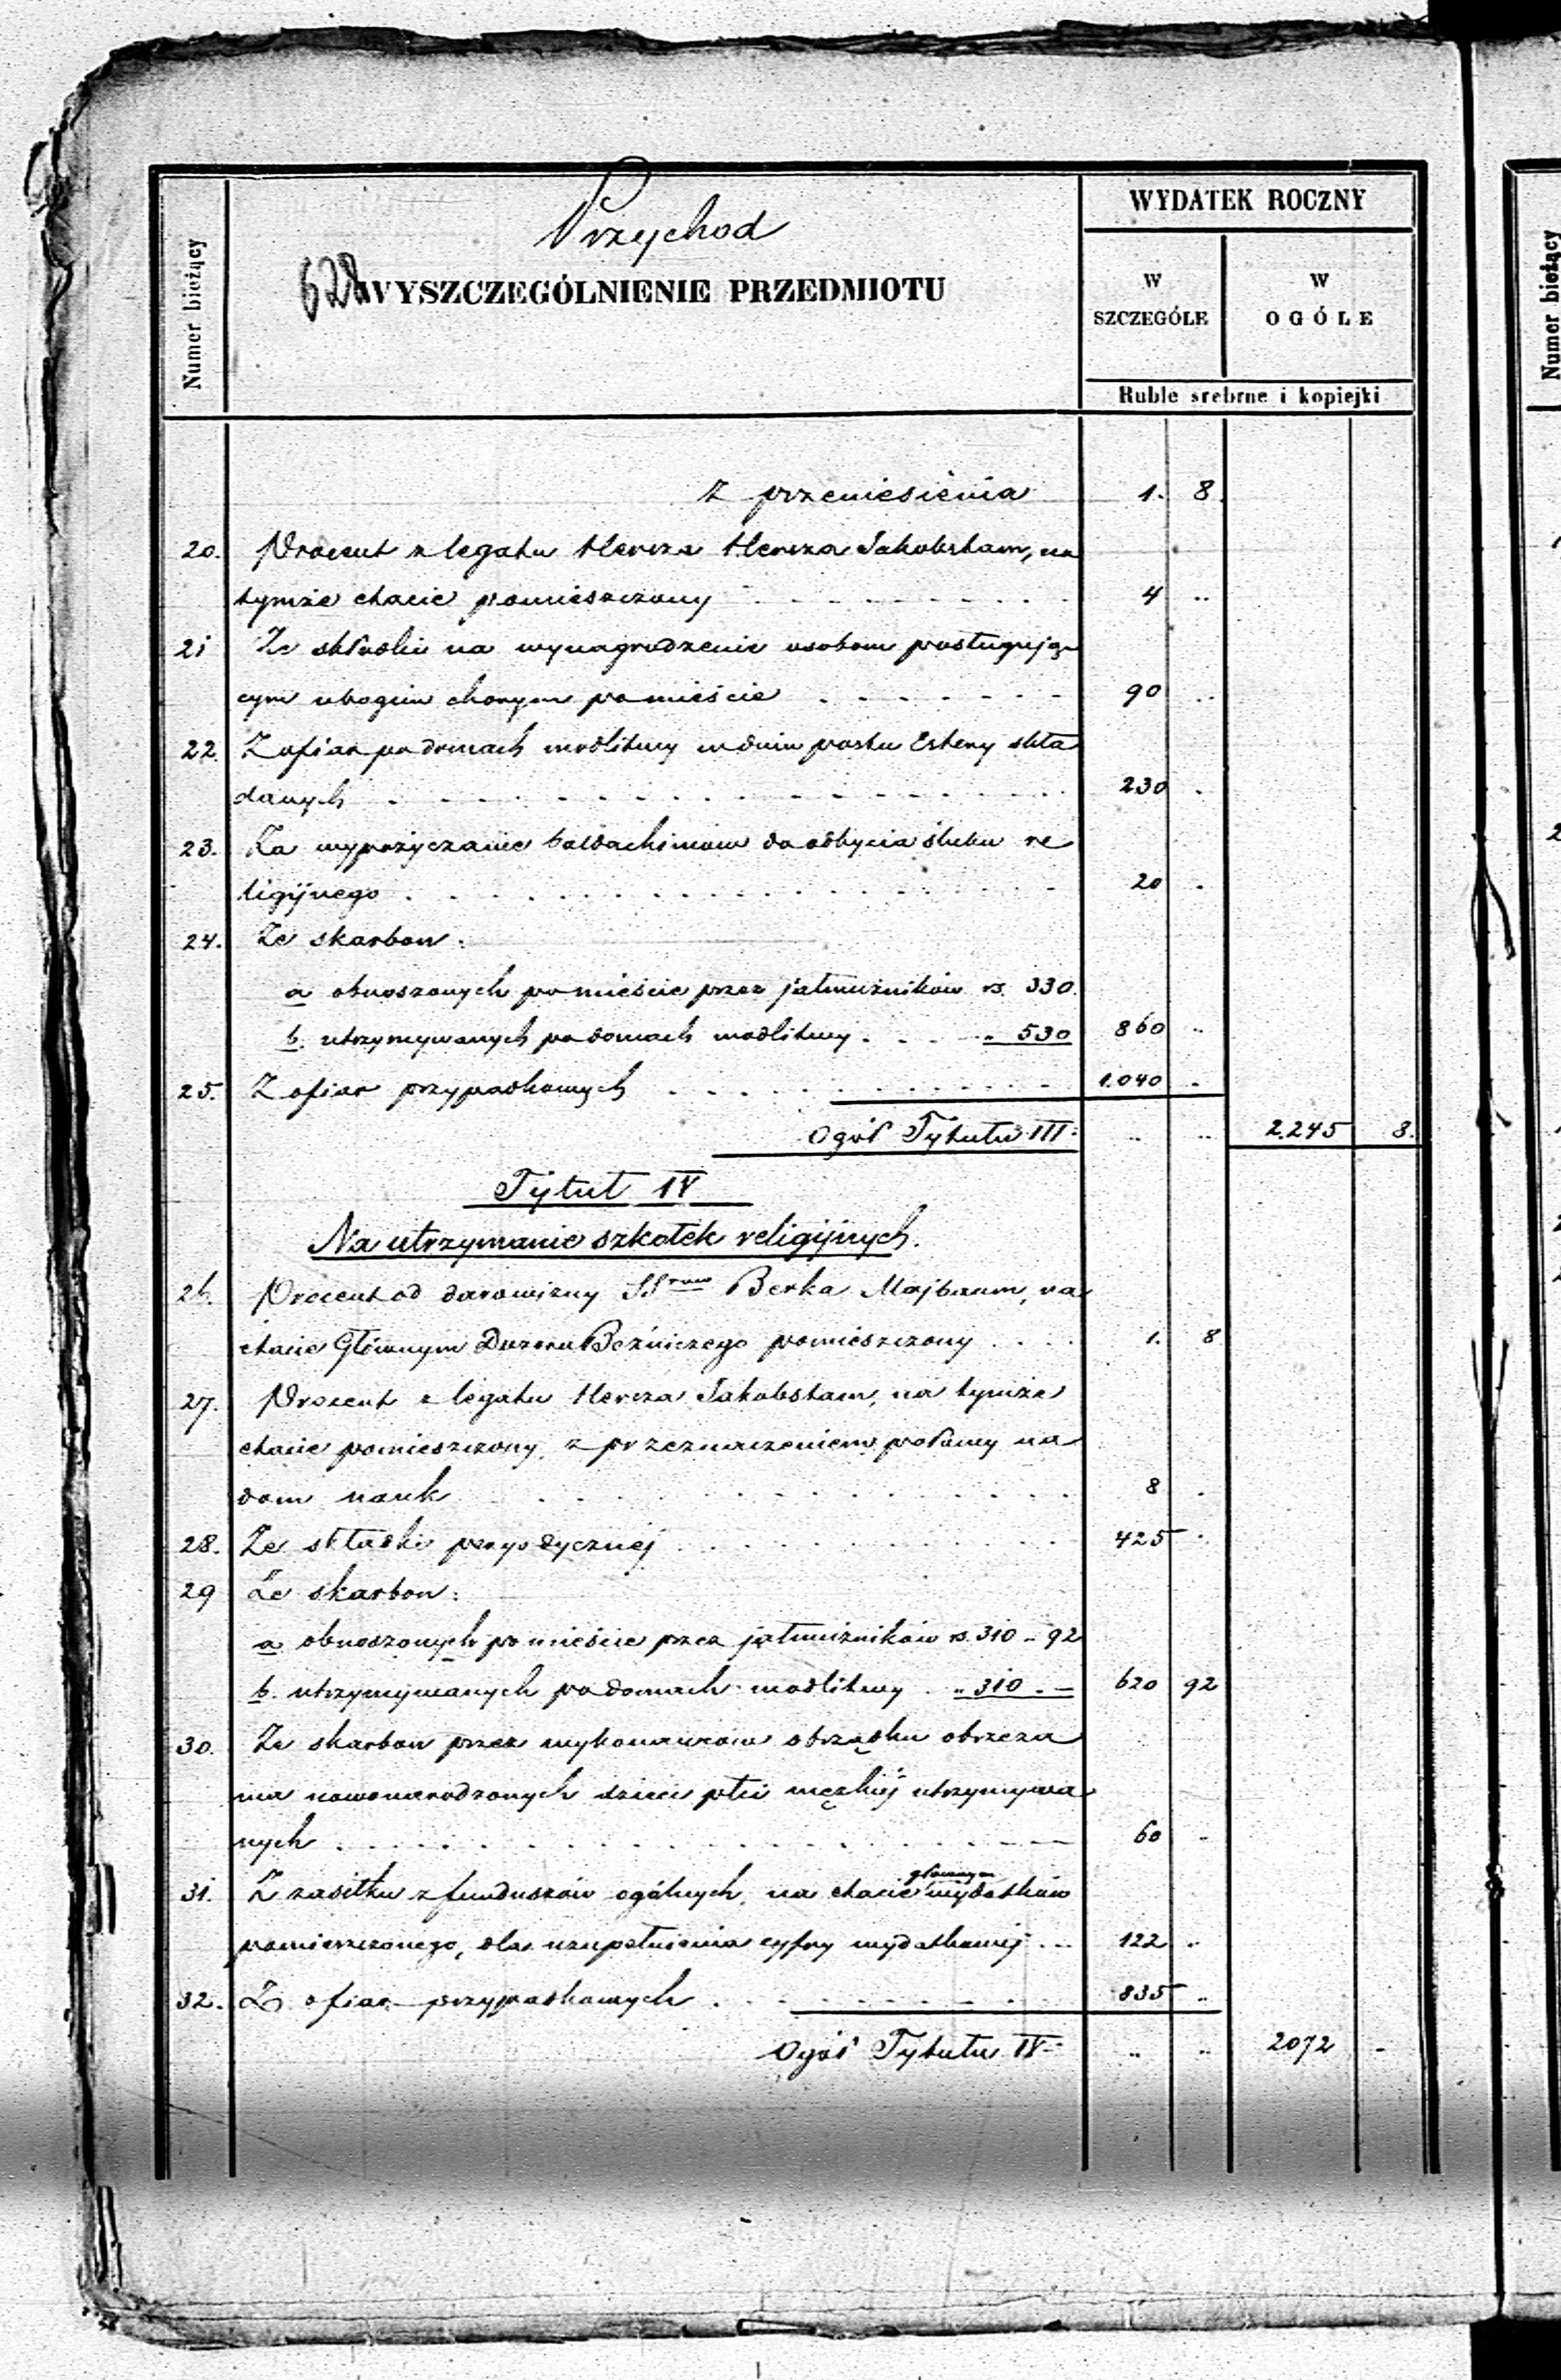 Przychod
628
WYSZCZEGÓLNIENIE PRZEDMIOTU
Numer bieżący
WYDATEK ROCZNY
W SZCZEGÓLE
W OGÓLE
Ruble srebrne i kopiejki
Z przeniesienia 1. 8.
20. Procent z legatu Hersza Hersza Jakobstam, na
tymże etacie pomieszczony - - - 4 ..
21 Ze składki na wynagrodzenie osobom posługują-
cym ubogim chorym po mieście . - - - 90 ..
22. Z ofiar po domach modlitwy w dniu postu Estery skła
danych . - - - 230 .
23. Za wypożyczanie baldachimów do odbycia ślubu re
ligijnego . . . 20 .
24. Ze skarbon:
a obnoszonych po mieście przez jałmużników rs. 330.
b. utrzymywanych po domach modlitwy . - - „ 530 860 ..
25. Z ofiar przypadkowych . . . 1.040 .
Ogół Tytułu III: .. .. 2.245 8.
Tytuł IV
Na utrzymanie szkółek religijnych.
26. Procent od darowizny SSrow Berka Majbaum, na
etacie Głównym Dozoru Bożniczego pomieszczony . . . 1. 8
27. Procent z legatu Hersza Jakobstam, na tymże
etacie pomieszczony, z przeznaczeniem połowy na
dom nauk . . . 8 .
28. Ze składki peryodycznej . . . 425 .
29 Ze skarbon:
a obnoszonych po mieście przez jałmużników rs. 310 .. 92
b. utrzymywanych po domach modlitwy . „ 310 . — 620 92
30. Ze skarbon przez wykonawców obrządku obrzeza
nia nowonarodzonych dzieci płci męzkiéj utrzymywa
nych . . . 60 ..
31. Z zasiłku z funduszów ogólnych, na etacie głównym wydatków
pomieszczonego, dla uzupełnienia cyfry wydatkowéj . .. 122 ..
32. Z ofiar przypadkowych . - - - 835 ..
Ogół Tytułu IV: .. .. 2072 -
Numer bieżący